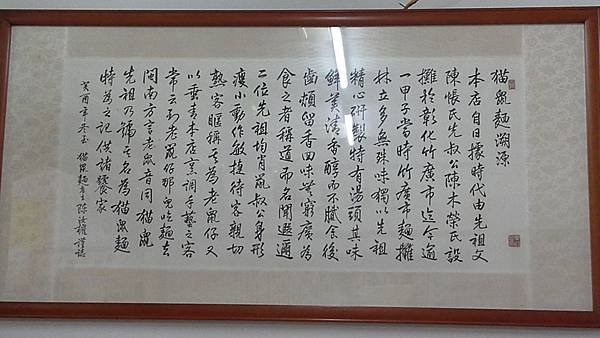 猫鼠麵溯源
本店自日據時代由先祖父
陳悵氏先叔公陳木榮氏設
攤於彰化竹廣市迄今逾
一甲子當時竹廣市麵攤
林立多無殊味獨以先祖
精心研製特有湯頭其味
鮮美清香醇而不膩食後
齒頰留香回味無窮廣為
食之者稱道而名聞遐邇
二位先祖均肖鼠叔公身形
瘦小動作敏捷待客親切
熟客暱稱其為老鼠仔又
以垂青本店烹調手藝之客
常云到老鼠仔那兒吃麵去
閩南方言老鼠音同猫鼠
先祖乃號其名為猫鼠麵
特為之記供諸饕家
癸酉年冬至 猫鼠麵主陳 權謹誌